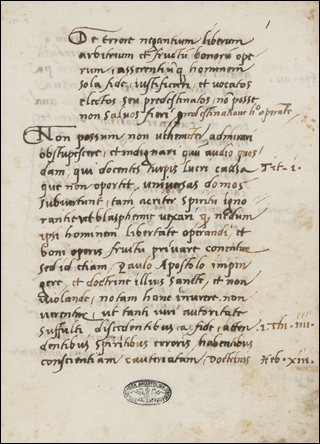 De errore negantium liberum
arbitrium et fructu bonoru ope
rum, asserentiuq hominem
sola fide iustificari, et vocatos
electos seu predestinatos no posse
non saluos fieri
Non possum non uehemeter admirari
obstupescere, et indignari qui audio quos
dam, qui docentes turpis lucri causa Tit. 1.
que non oportet, uniuersas domos
subuertunt, tam acriter spiritu igno
rantie et blasphemie uexari q nedum
ipsi hominem libertate operandi et
boni operis fructu priuare conentur
sed id etiam, Paulo Apostolo impin
gere et doctrine illius sancte, et non
violande, notam hanc inurere non
uerentur, ut tanti uiri autoritate
suffulti discedentibus a fide, atten
dentibus spiritibus erroris habentibus
conscientiam cauteriatam, doctrinis Heb. xiii.